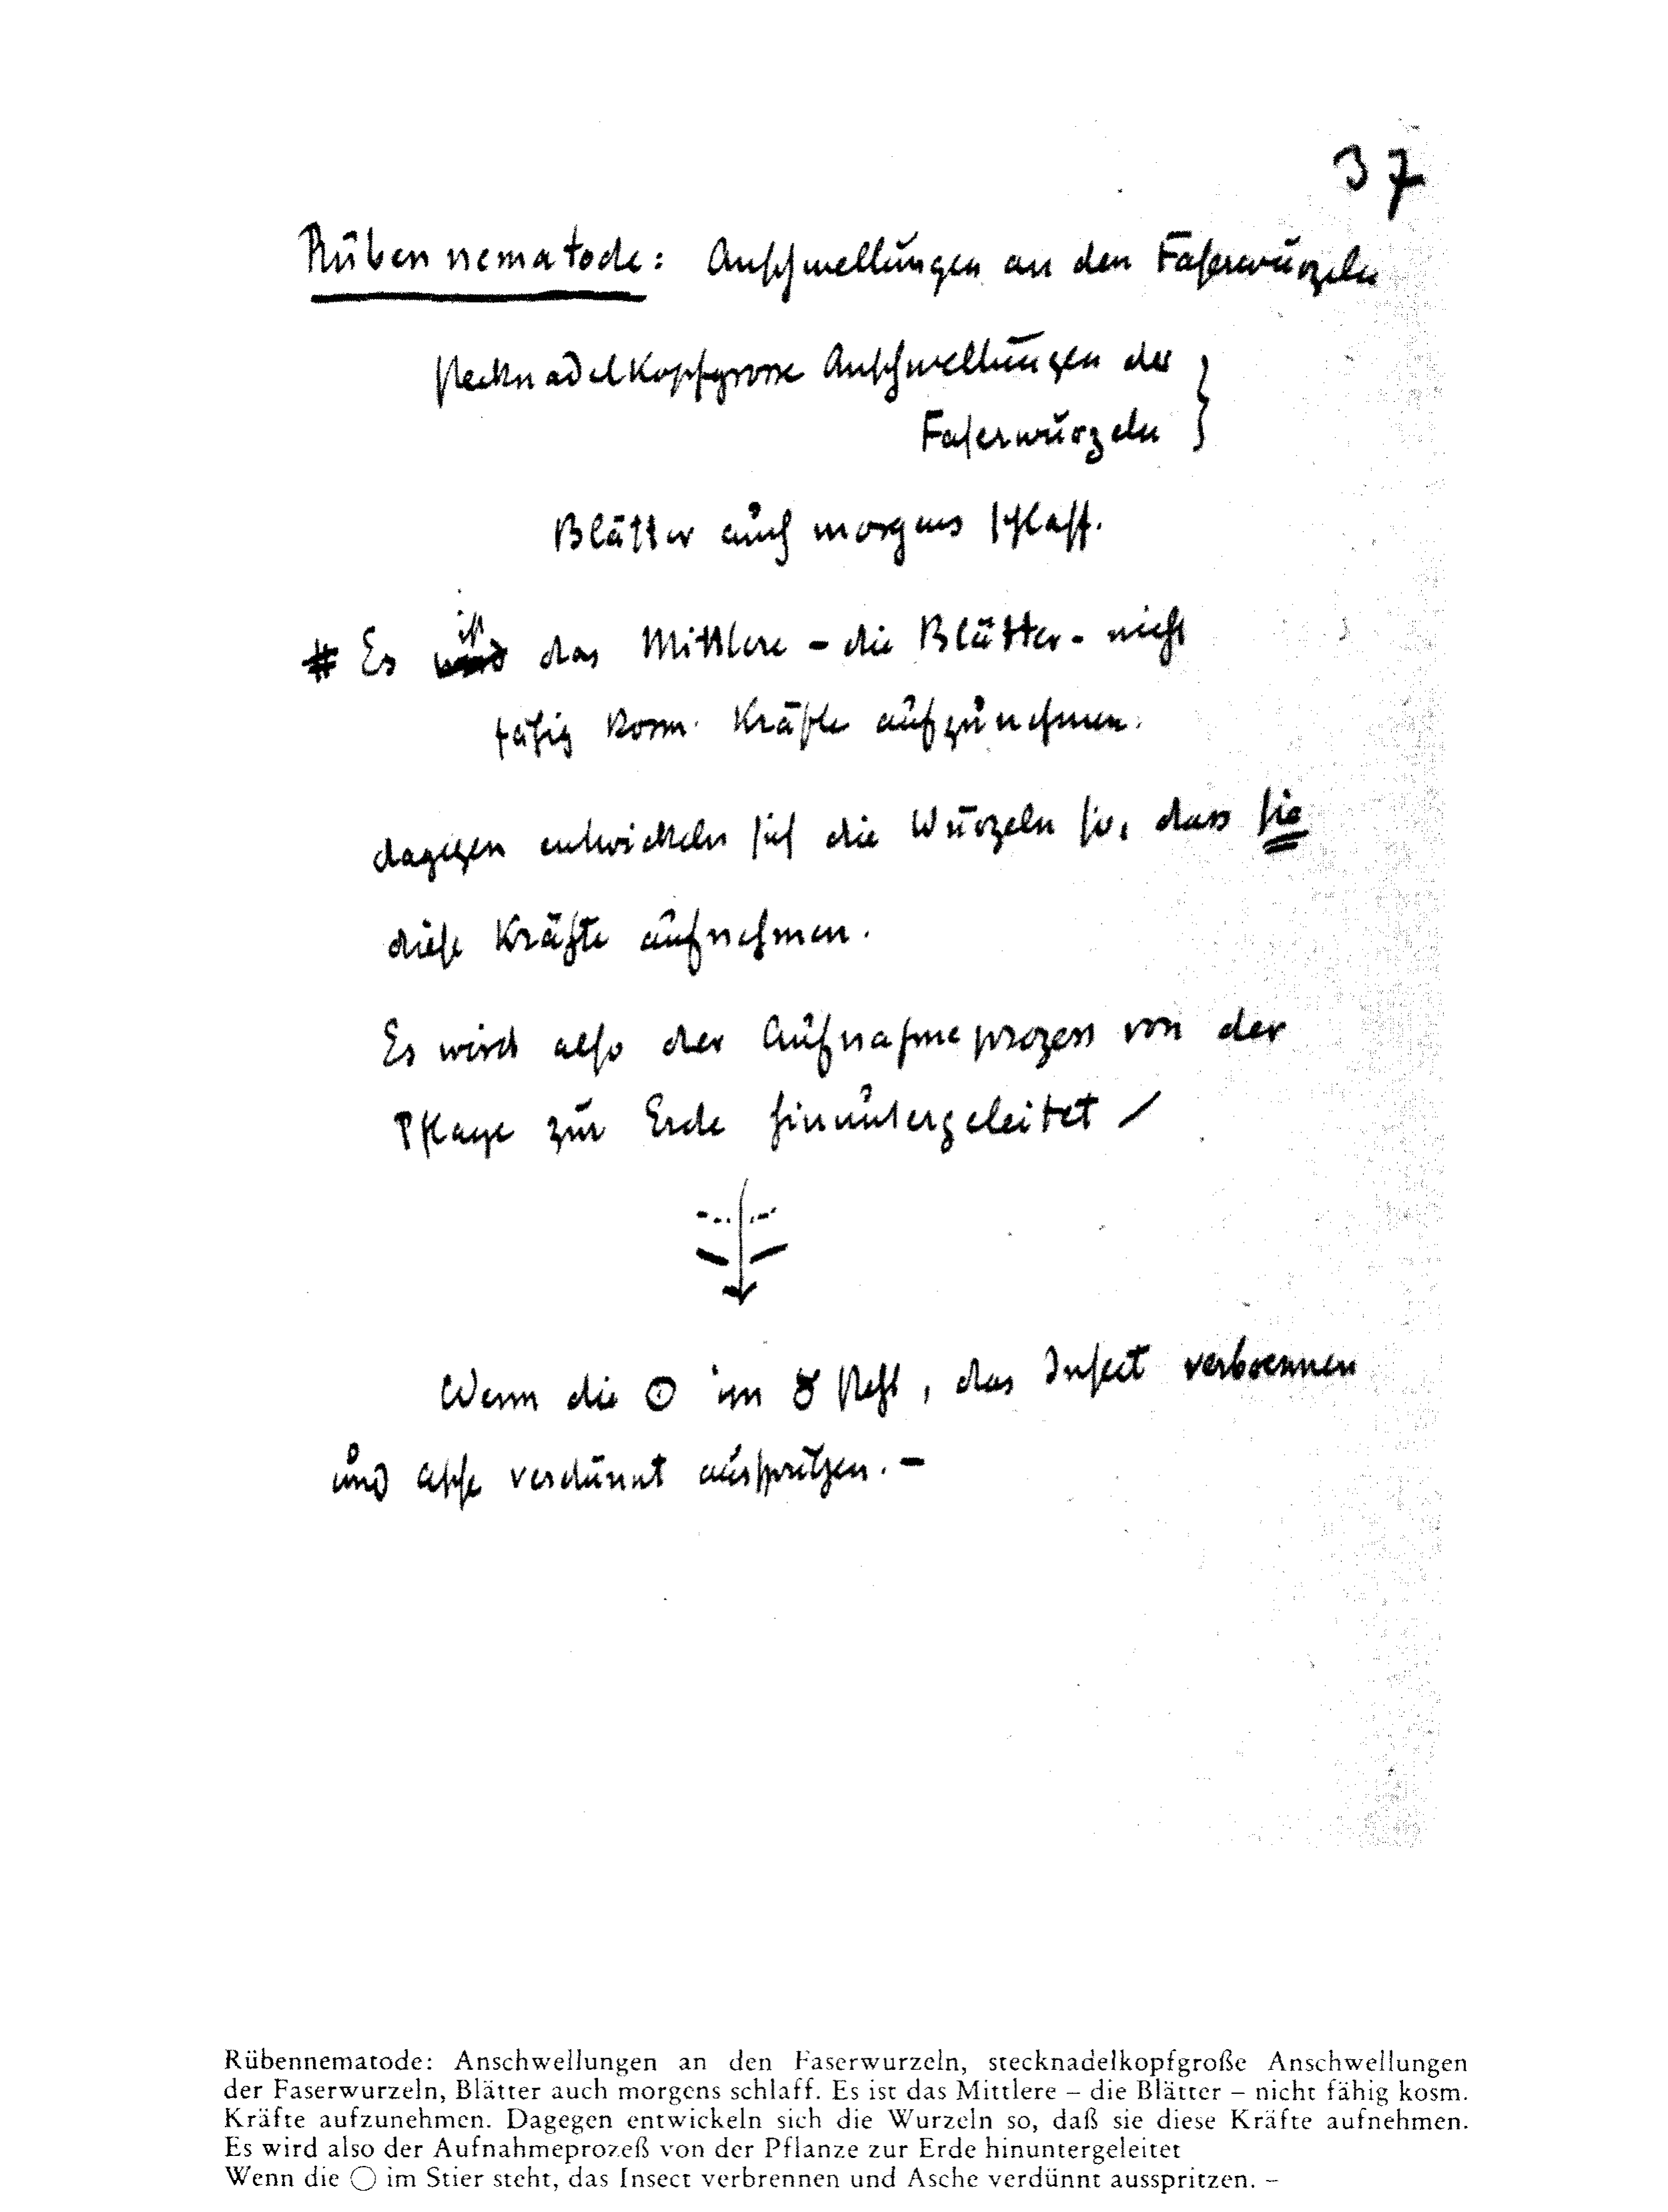 37
Rübennematode: Anschwellungen an den Faserwurzeln
stecknadelkopfgrosse Anschwellungen der }
Faserwurzeln
Blätter auch morgens schlaff.
# Es ist das Mittlere – die Blätter – nicht
fähig kosm. Kräfte aufzunehmen.
dagegen entwickeln sich die Wurzeln so, dass sie
diese Kräfte aufnehmen.
Es wird also der Aufnahmeprozess von der
Pflanze zur Erde hinuntergeleitet /
Wenn die ☉ im ♉ steht, das Insect verbrennen
und Asche verdünnt ausspritzen. –
Rübennematode: Anschwellungen an den Faserwurzeln, stecknadelkopfgroße Anschwellungen
der Faserwurzeln, Blätter auch morgens schlaff. Es ist das Mittlere – die Blätter – nicht fähig kosm.
Kräfte aufzunehmen. Dagegen entwickeln sich die Wurzeln so, daß sie diese Kräfte aufnehmen.
Es wird also der Aufnahmeprozeß von der Pflanze zur Erde hinuntergeleitet
Wenn die ◯ im Stier steht, das Insect verbrennen und Asche verdünnt ausspritzen. –